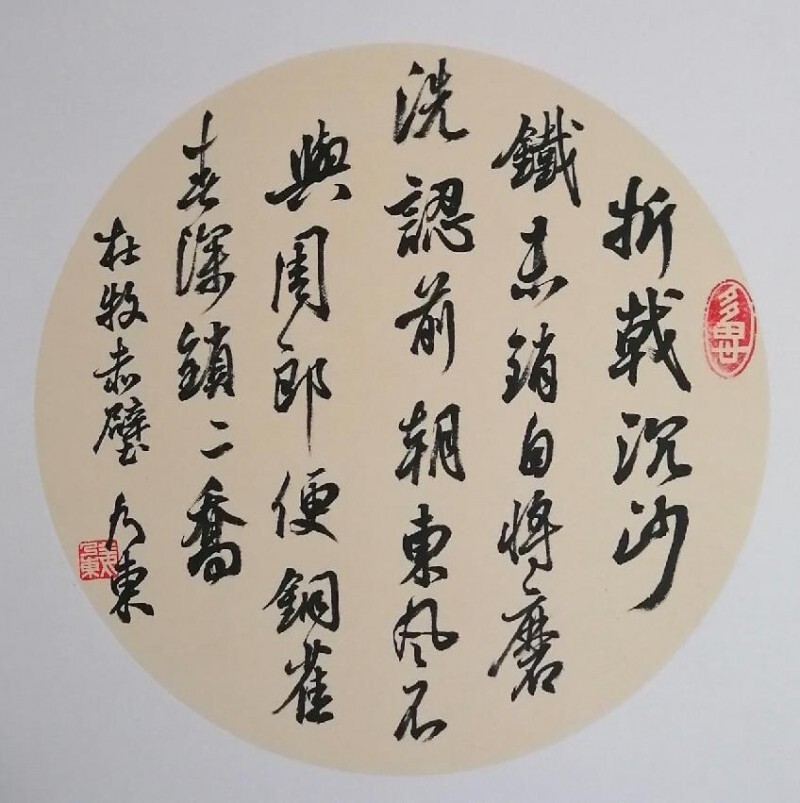 折戟沉沙
鐵未銷自將磨
洗認前朝東風不
與周郎便銅雀
春深鎖二喬
杜牧赤壁 東